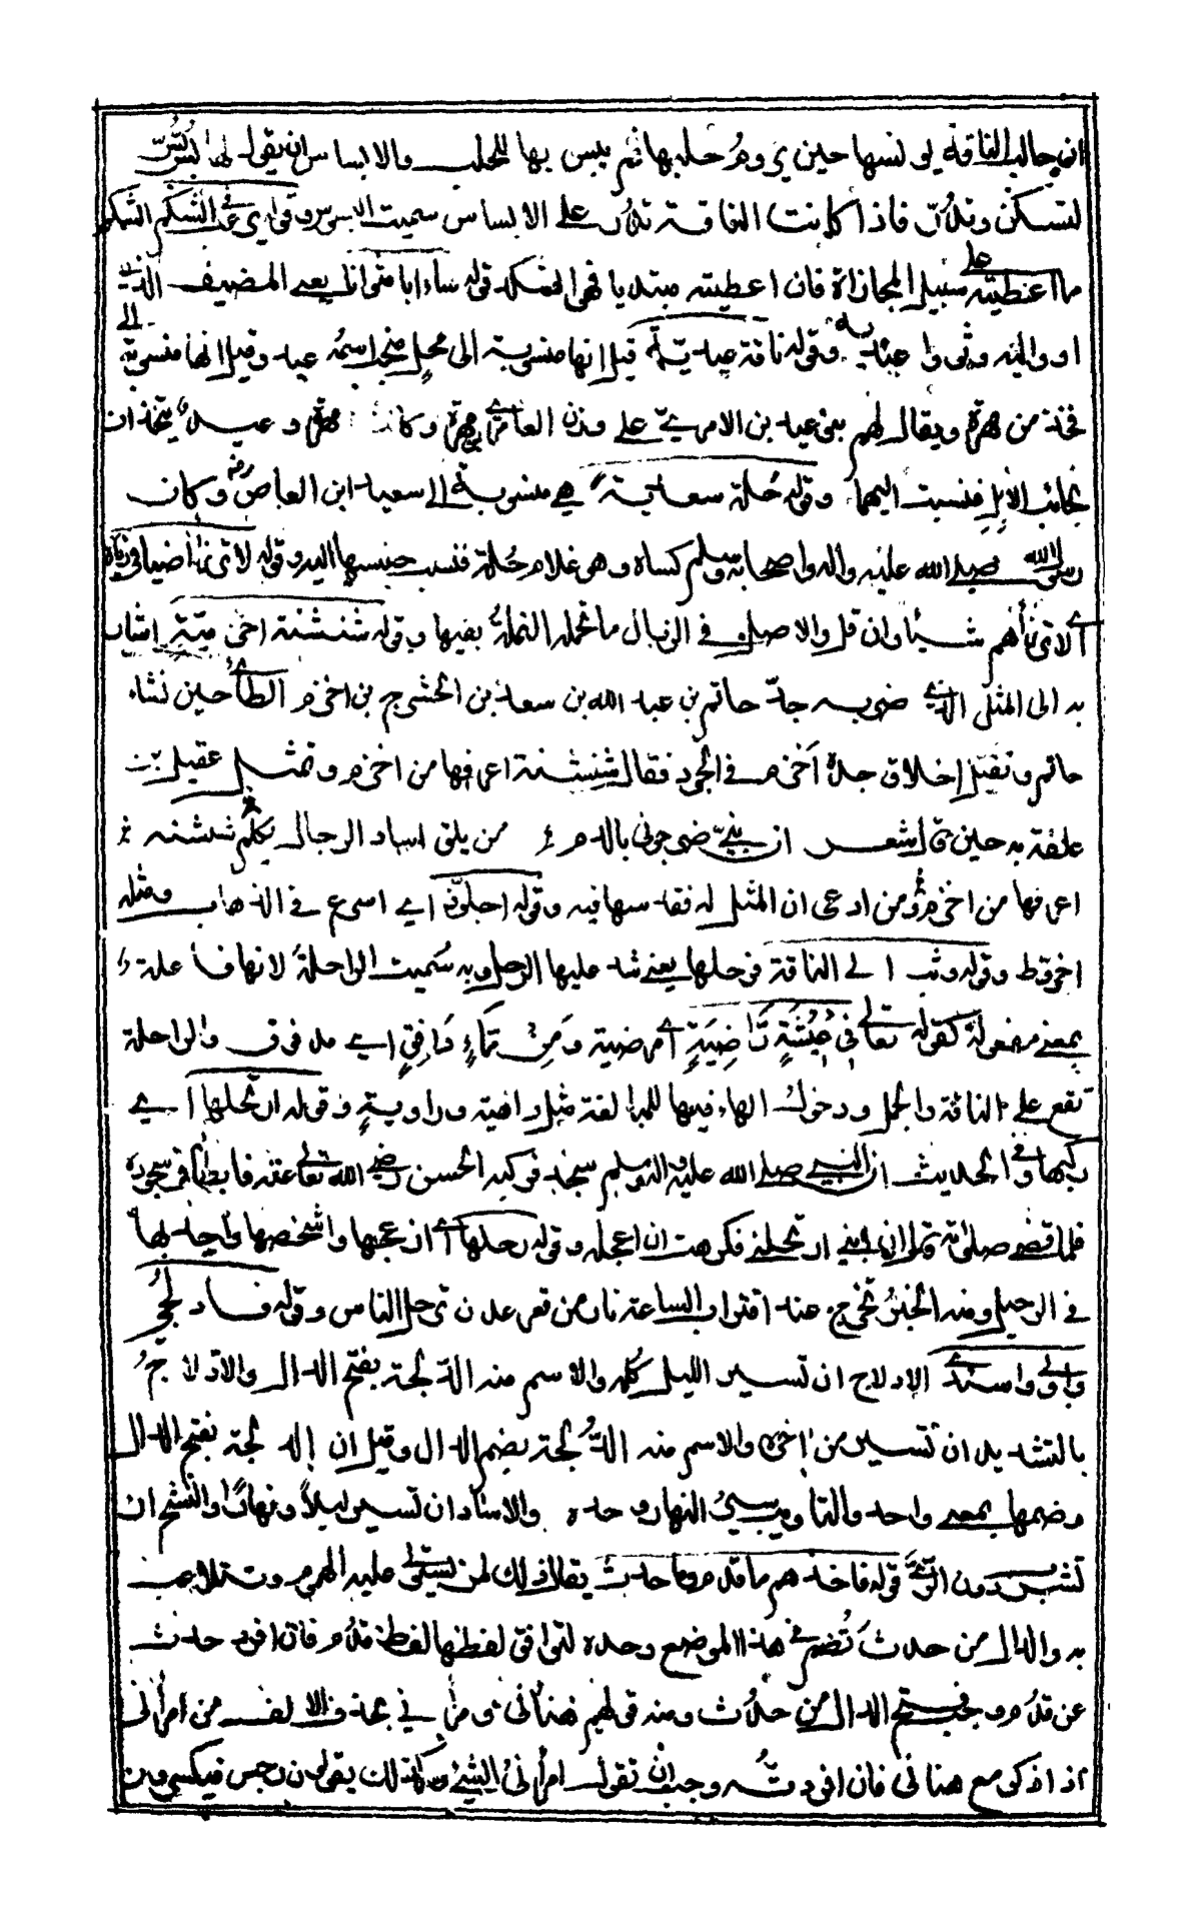 ان حالب الناقة يونسها حين يروم حلبها ثم يبس بها للحلب والابساس ان يقول لها بُسّ بُسّ
لتسكن وتدرّ فاذا كانت الناقة تدرّ على الابساس سميت البسوس وقوله يرغب في الشكم الشكم
ما اعطيته على سبيل المجازاة فان اعطيته مبتديا فهو الشكد قوله ساء ابا مثوانا يعنى المضيف الذى
اووا اليه وثووا عنده وقوله ناقة عيدية قيل انها منسوبة الى فحل منجب اسمه عيد وقيل انها منسوبة الى
فخذ من مهرة ويقال لهم بنى عيد بن الامرى على وزن العامرى مهرة وكانت مهرة وعيد يتخذان
نجائب الابل فنسبت اليهما وقوله حُلة سعدية هى منسوبة الى سعيد ابن العاص رضه وكان
رسول الله صلى الله عليه واله واصحابه وسلم كساه وهو غلام حُلة فنسب جنسها اليه وقوله لا ترزأ اضيافى زبالا
اى لا ترزأهم شيئا وان قل والاصل فى الزبال ما تحمله النملة بفيها وقوله شنشنة اخزمية اشارت
به الى المثل الذى ضربه جد حاتم بن عبد الله بن سعد بن الحشرج بن اخزم الطائى حين نشاء
حاتم وتقيل اخلاق جده اخزم فى الجود فقال شنشنة اعرفها من اخزم وتمثل عقيل بن
علفة به حين قال شعر ان بنىّ ضرجونى بالدم من يلق اساد الرجال يكلم شنشنه
اعرفها من اخزم ومن ادعى ان المثل له فقد سها فيه وقوله اجلوّذ اى اسرع فى الذهاب ومثله
اخروط وقوله وثب الى الناقة فرحلها يعنى شد عليها الرحل وبه سُميت الراحلة لانها فاعلة
بمعنى مفعولة كقوله تعالى فى عيشة راضية اى مرضية ومن ماء دافق اى مدفوق والراحلة
تقع على الناقة والجمل ودخول الهاء فيها للمبالغة مثل داهية وراوية وقوله ارتحلها اى
ركبها وفى الحديث ان النبى صلى الله عليه واله وسلم سجد فركبه الحسن رضى الله تعالى عنه فابطأ فى سجوده
فلما قضى صلوته قال ان ابنى ارتحلنى فكرهت ان اعجله وقوله رحلها اى ازعجها واشخصها واجد بها
فى الرحيل ومنه الخبر تخرج عند اقتراب الساعة نار من قعر عدن ترحل الناس وقوله فادلجى
واوبى واسئدى الادلاج ان تسير الليل كله والاسم منه الدّلجة بفتح الدال والادّلاج
بالتشديد ان تسير من اخره والاسم منه الدُّلجة بضم الدال وقيل ان الدلجة بفتح الدال
وضمها بمعنى واحد والتاويب سير النهار وحده والاسئاد ان تسير ليلاً ونهاراً والنشح ان
تشرب دون الرىّ قوله فاخذهم ما قدم وما حدث يقال ذلك لمن يستولى عليه الهموم وتتلاعب
به والدال من حدث تُضم فى هذا الموضع وحده لتوافق لفظها لفظ قدم فان افرد حدث
عن قدم وجب فتح الدال من حدث ومنه قولهم هنأنى ومرأنى بحذف الالف من امرأنى
اذا ذكر مع هنانى فان افردته وجب ان تقول امرأنى الشئ وكذلك يقولون رجس فيكسرون